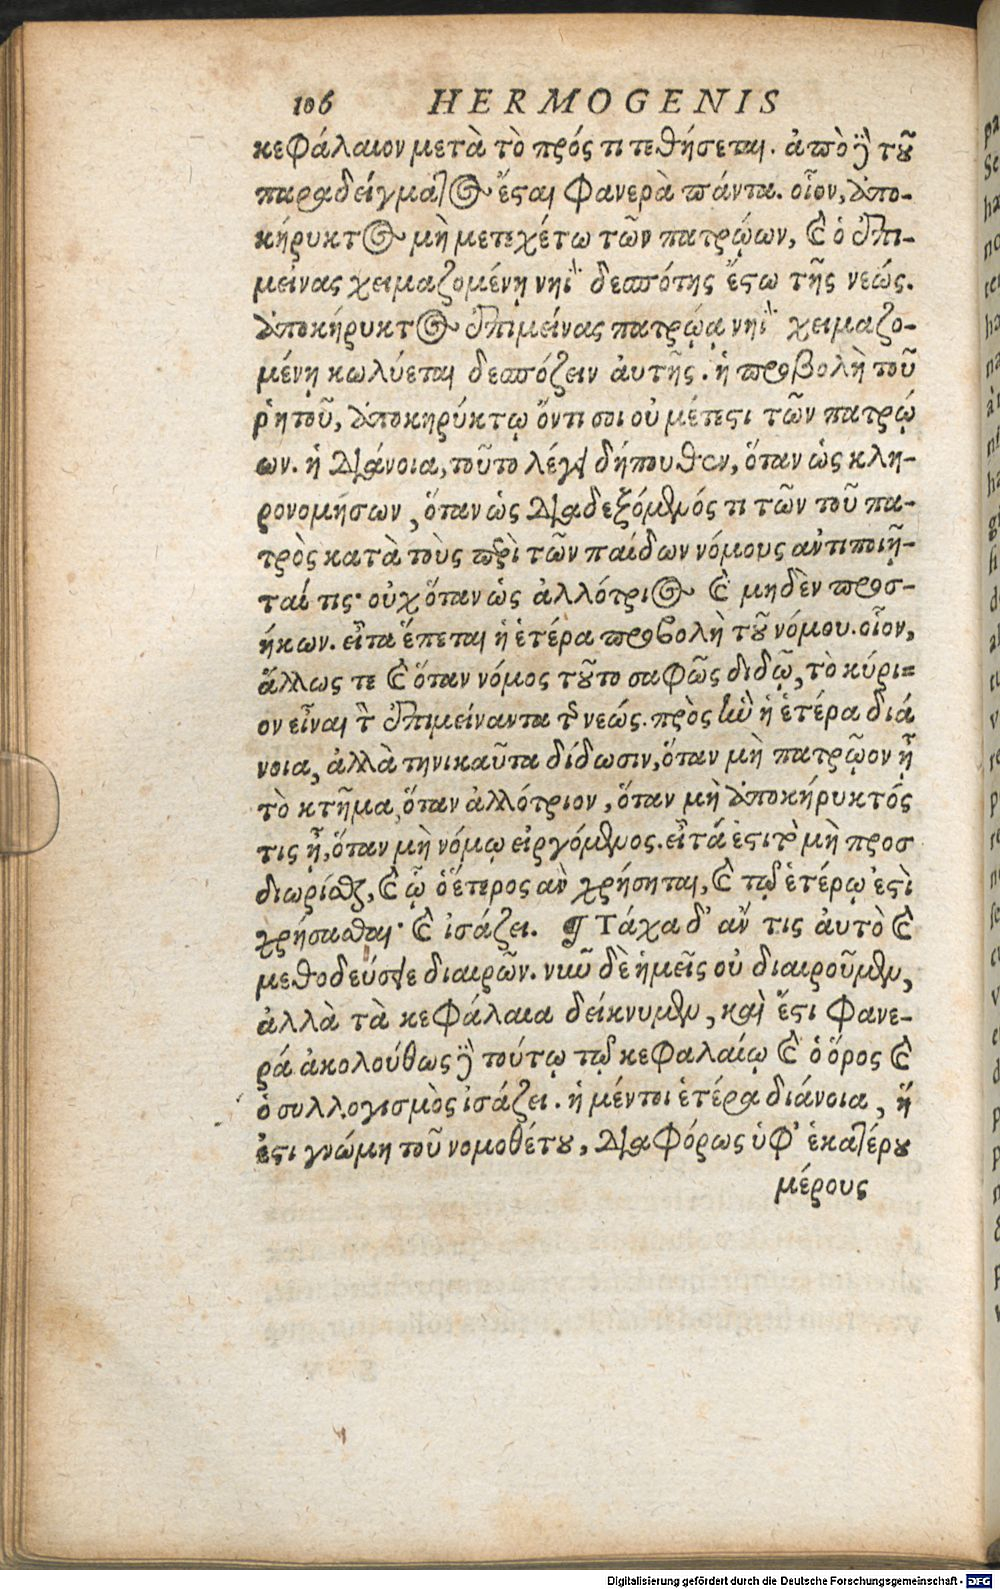 106 HERMOGENIS
κεφάλαιον μετὰ τὸ πρός τι τεθήσεται. ἀπὸ δὲ τοῦ
παραδείγματος ἔσται φανερὰ πάντα. οἷον, ἀπο-
κήρυκτος μὴ μετεχέτω τῶν πατρῴων, καὶ ὁ ἐπι-
μείνας χειμαζομένῃ νηῒ δεσπότης ἔστω τῆς νεώς.
ἀποκήρυκτος ἐπιμείνας πατρῴᾳ νηῒ χειμαζο-
μένῃ κωλύεται δεσπόζειν αὐτῆς. ἡ προβολὴ τοῦ
ῥητοῦ, ἀποκηρύκτῳ ὄντι σοι οὐ μέτεστι τῶν πατρῴ
ων. ἡ διάνοια, τοῦτο λέγει δήπουθεν, ὅταν ὡς κλη-
ρονομήσων, ὅταν ὡς διαδεξόμενός τι τῶν τοῦ πα-
τρὸς κατὰ τοὺς περὶ τῶν παίδων νόμους ἀντιποιῆ-
ταί τις· οὐχ ὅταν ὡς ἀλλότριος καὶ μηδὲν προσ-
ήκων. εἶτα ἕπεται ἡ ἑτέρα προβολὴ τοῦ νόμου. οἷον,
ἄλλως τε καὶ ὅταν νόμος τοῦτο σαφῶς διδῷ, τὸ κύρι=
ον εἶναι τὸν ἐπιμείναντα τῆς νεώς. πρὸς ἣν ἡ ἑτέρα διά
νοια, ἀλλὰ τηνικαῦτα δίδωσιν, ὅταν μὴ πατρῷον ᾖ
τὸ κτῆμα, ὅταν ἀλλότριον, ὅταν μὴ ἀποκήρυκτός
τις ᾖ, ὅταν μὴ νόμῳ εἰργόμενος. εἶτά ἐστι τὸ μὴ προσ
διωρίσθαι, καὶ ᾧ ὁ ἕτερος ἂν χρήσηται, καὶ τῷ ἑτέρῳ ἐστὶ
χρήσασθαι· καὶ ἰσάζει. ¶ Τάχα δ’ ἄν τις αὐτὸ καὶ
μεθοδεύσειε διαιρῶν. νῦν δὲ ἡμεῖς οὐ διαιροῦμεν,
ἀλλὰ τὰ κεφάλαια δείκνυμεν, καὶ ἔστι φανε-
ρά ἀκολούθως δὲ τούτῳ τῷ κεφαλαίῳ καὶ ὁ ὅρος καὶ
ὁ συλλογισμὸς ἰσάζει. ἡ μέντοι ἑτέρα διάνοια, ἥ
ἐστι γνώμη τοῦ νομοθέτου, διαφόρως ὑφ’ ἑκατέρου
μέρους
Digitalisierung gefördert durch die Deutsche Forschungsgemeinschaft - DFG